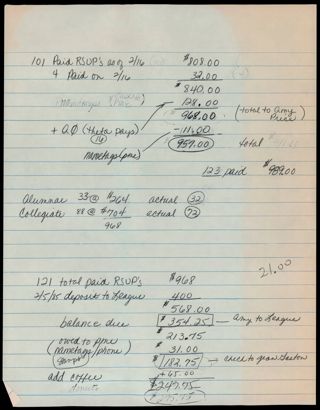 101 Paid RSUP's as of 2/16 $808.00
4 Paid on 2/16 32.00
$840.00
128.00
968.00 (total to Amy
+ AΦ (theta pays) Price)
16
-111.00
nametags (pne) 957.00 total
123 paid $989.00
Alumnae 33 @ $264 actual 32
Collegiate 88 @ $704 actual 72
968
21.00
121 total paid RSUP's $968
2/5/85 deposit to League 400
$568.00
balance due $354.25 Amy to League
owed to pne $213.75
(nametags/phone) $31.00
stamps $182.75 check to Jean Seaton
add coffee +65.00
donuts $247.75